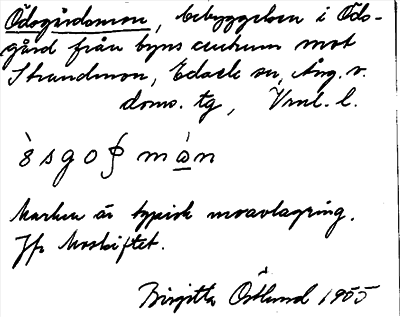 Ödsgårdsmon, bebyggelsen i Öds-
gård från byns centrum mot
Strandmon, Edsele sn, Ång. v.
doms. tg, Vnl. l.
Marken är typisk moavlagring.
Jfr Moskiftet.
Birgitta Östlund 1955